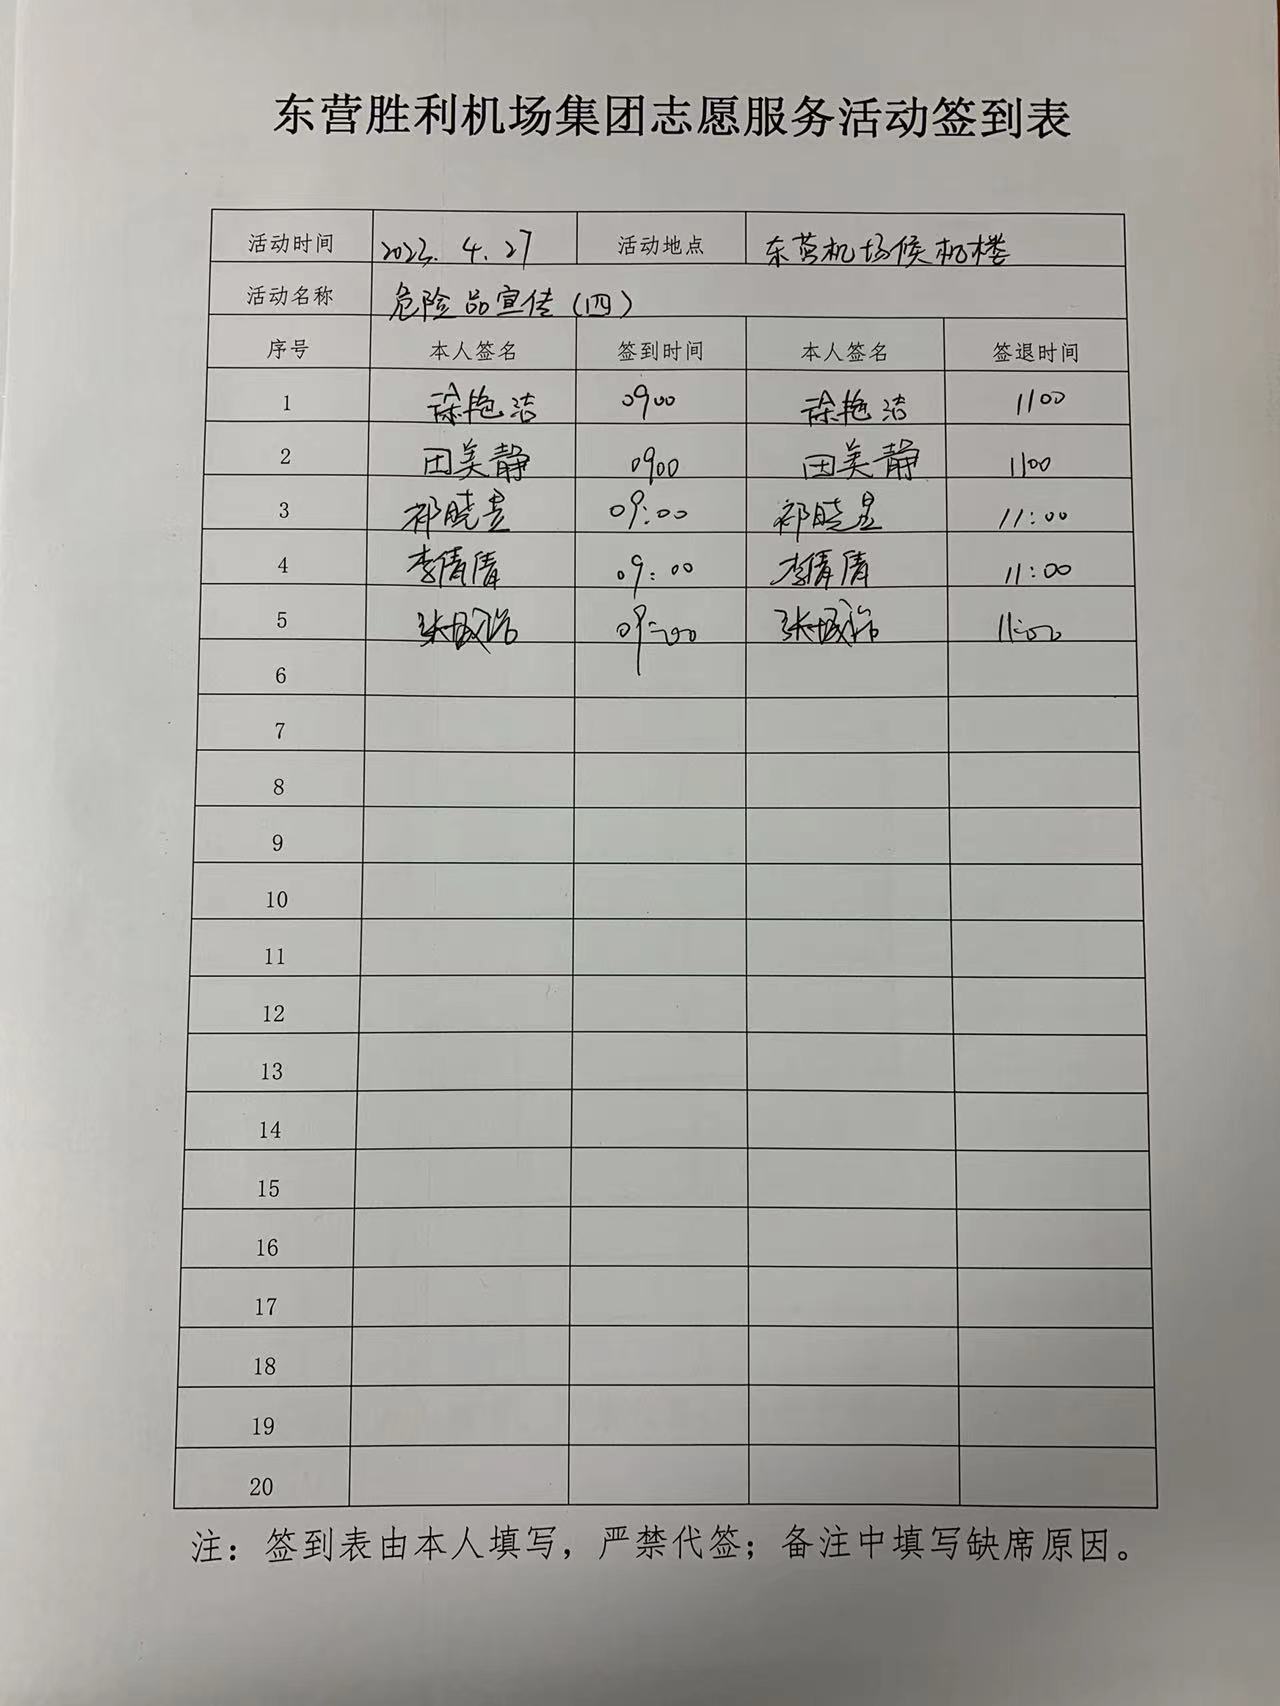 东营胜利机场集团志愿服务活动签到表
活动时间 2023.4.27 活动地点 东营机场候机楼
活动名称 危险品宣传(四)
序号 本人签名 签到时间 本人签名 签退时间
1 徐艳洁 0900 徐艳洁 1100
2 田美静 0900 田美静 1100
3 祁晓昱 09:00 祁晓昱 11:00
4 李倩倩 09:00 李倩倩 11:00
5 09:00 11:00
6
7
8
9
10
11
12
13
14
15
16
17
18
19
20
注：签到表由本人填写，严禁代签；备注中填写缺席原因。